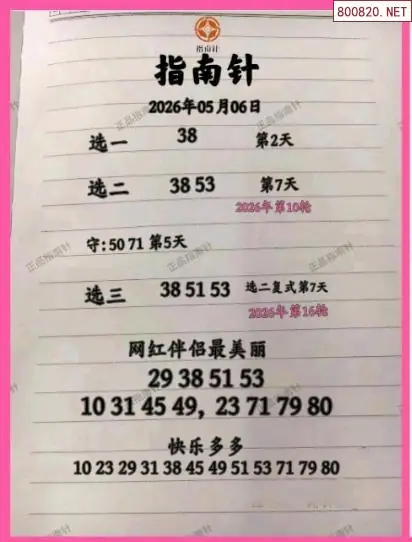 800820.NET
指南针
指南针
2026年05月06日
选一 38 第2天
选二 38 53 第7天
2026年第10轮
守:50 71 第5天
选三 38 51 53 选二复式第7天
2026年第16轮
网红伴侣最美丽
29 38 51 53
10 31 45 49, 23 71 79 80
快乐多多
10 23 29 31 38 45 49 51 53 71 79 80
正品指南针
正品指南针
正品指南针
正品指南针
正品指南针
正品指南针